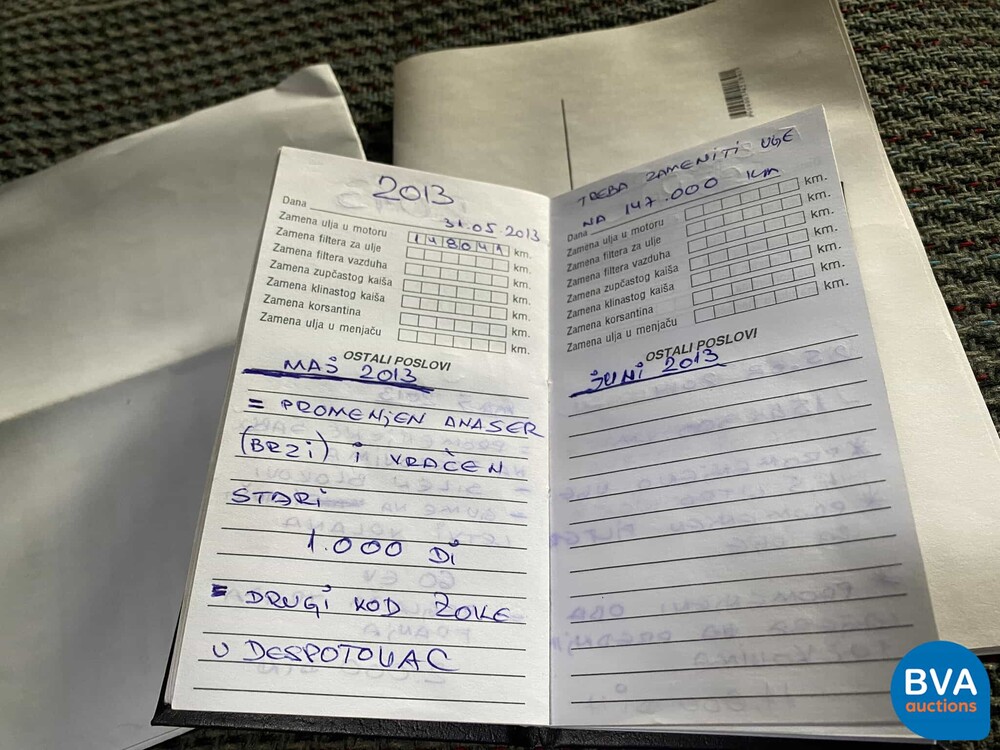 2013
Dana
31.05.2013
Zamena ulja u motoru 148041 km.
Zamena filtera za ulje km.
Zamena filtera vazduha km.
Zamena zupčastog kaiša km.
Zamena klinastog kaiša km.
Zamena korsantina km.
Zamena ulja u menjaču km.
OSTALI POSLOVI
MAŠ 2013
= PROMENJEN ANASER
(BRZI) I VRAČEN
STARI
1.000 DI
= DRUGI KOD ZOKE
U DESPOTOVAC
TREBA ZAMENITI UGE
NA 147.000 KM
Dana
Zamena ulja u motoru km.
Zamena filtera za ulje km.
Zamena filtera vazduha km.
Zamena zupčastog kaiša km.
Zamena klinastog kaiša km.
Zamena korsantina km.
Zamena ulja u menjaču km.
OSTALI POSLOVI
JUNI 2013
BVA
auctions